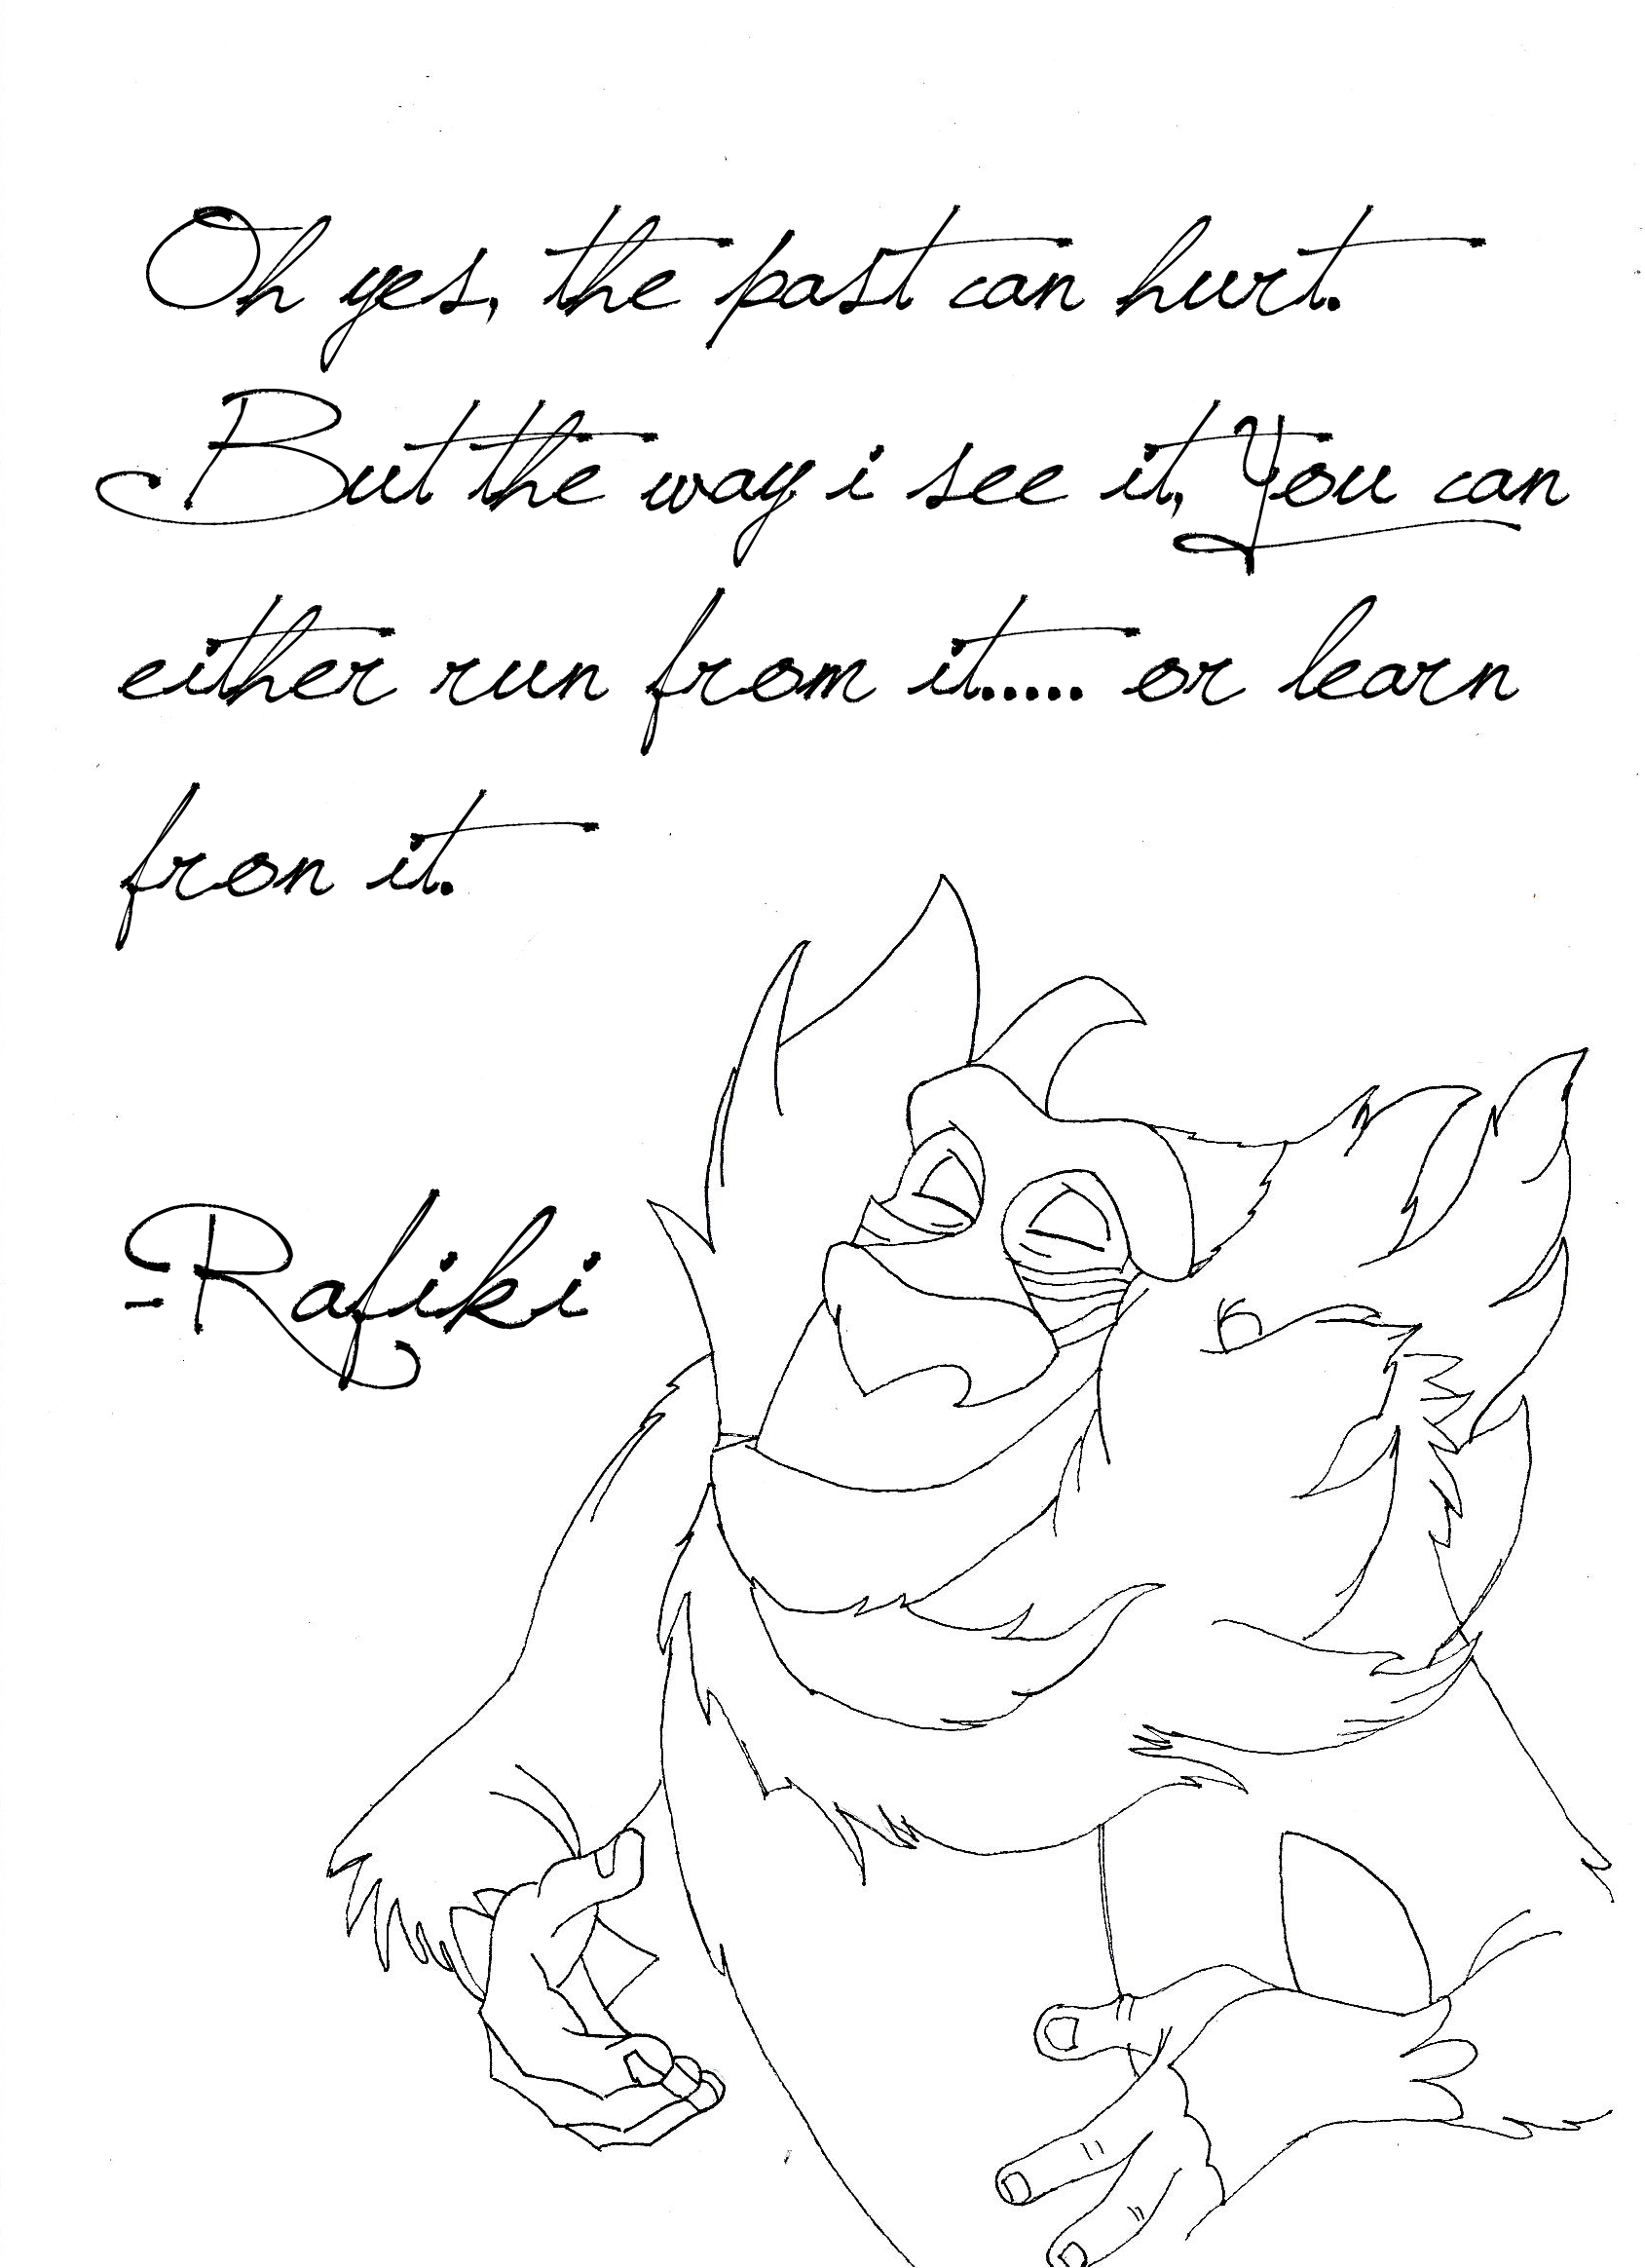 Oh yes, the past can hurt.
But the way i see it, You can
either run from it..... or learn
fron it.
-Rafiki